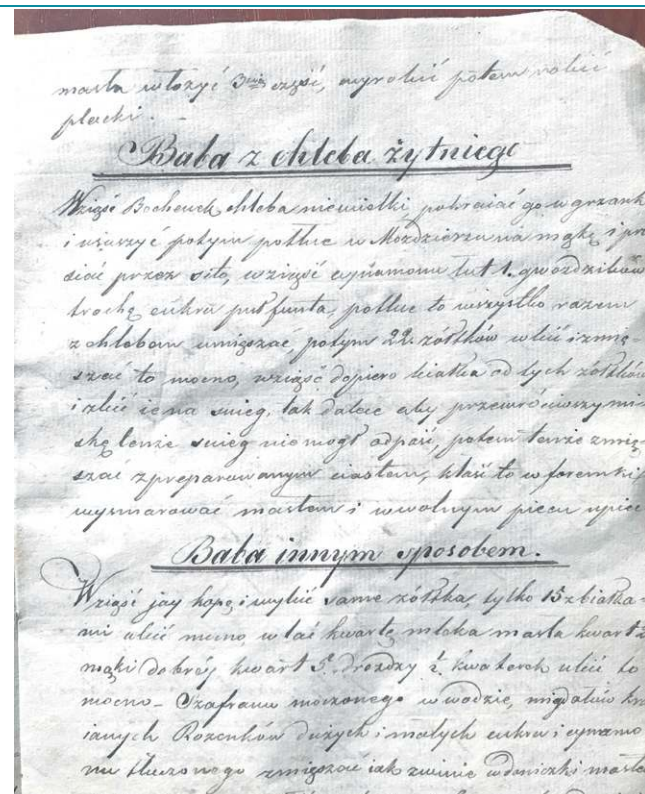 masła włożyć 3cią część, wyrobić potem robić
placki. -
Baba z chleba żytniego
Wziąść Bochenek chleba niewielki pokraiać go w grzank
i ususzyć potym potłuc w Mozdzierzu na mąkę i prze
siać przez sito, wziąść cynamonu łut 1. gwozdzików
trochę cukru puł funta, potłuc to wszystko razem
z chlebem umięszać, potym 22. zółtków wlić i zmię-
szać to mocno, wziąść dopiero białka od tych zółtków
i zbić ie na snieg, tak dalece aby przewróciwszy mi
skę tenże snieg nie mogł odpaść, potem tenże zmię-
szać z preparowanym ciastem, kłaść to w foremki
wysmarować masłem i w wolnym piecu upiec
Baba innym sposobem.
Wziąść jay kopę i wybić same zółtka, tylko 15 z białka-
mi ubić mocno, wlać kwartę mleka masła kwart
mąki dobréj kwart drozdzy kwaterek ubić to
mocno - Szafranu moczonego w wodzie, migdałów kra
ianych Rozenków dużych i małych cukru i cynamo
nu tłuczonego zmięszać iak zwinie masła